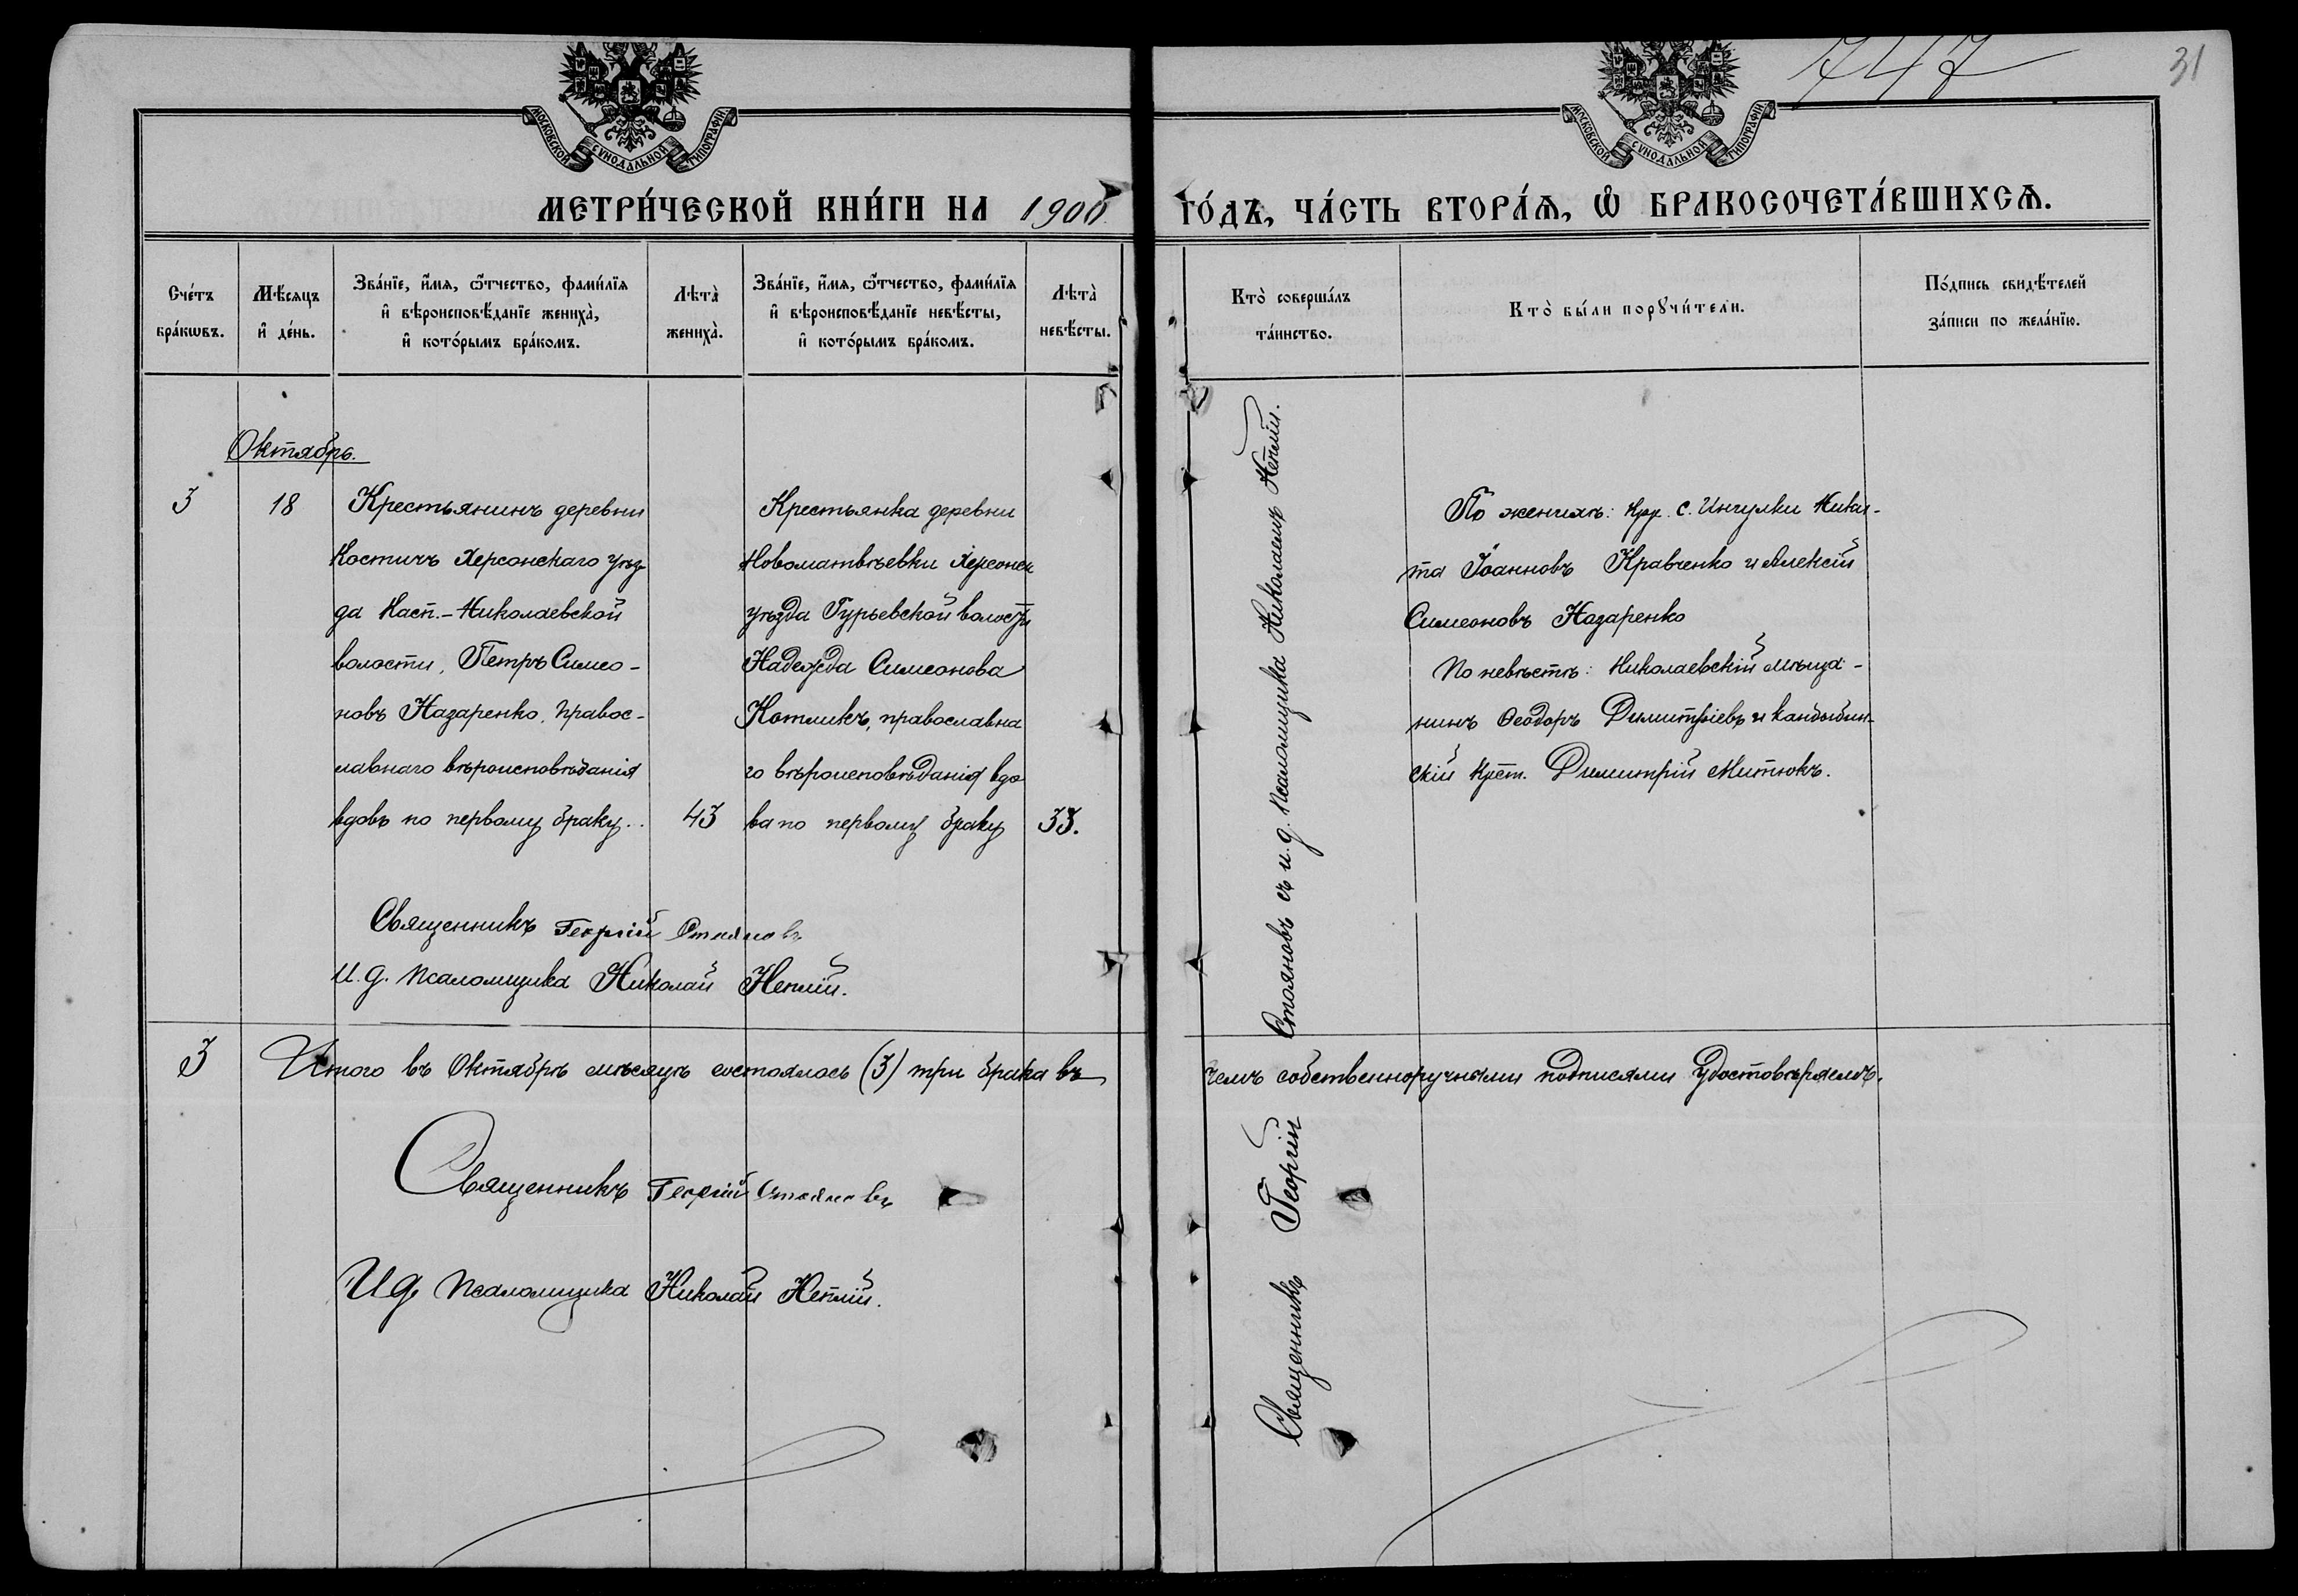 747
31
МОСКОВСКОЙ СѴНОДАЛЬНОЙ ТИПОГРАФІИ
МОСКОВСКОЙ СѴНОДАЛЬНОЙ ТИПОГРАФІИ
МЕТРИ́ЧЕСКОЙ КНИ́ГИ НА 1900 ГО́ДЪ, ЧА́СТЬ ВТОРА́Ѧ, Ѽ БРАКОСОЧЕТА́ВШИХСѦ.
Сче́тъ бра́кѡвъ.
Мѣ́сяцъ и҆ де́нь.
Зва́нїе, и҆́мѧ, ѻ҆́тчество, фами́лїѧ и҆ вѣроисповѣ́данїе женихà, и҆ кото́рымъ бра́комъ.
Лѣтà женихà.
Зва́нїе, и҆́мѧ, ѻ҆́тчество, фами́лїѧ и҆ вѣроисповѣ́данїе невѣ́сты, и҆ кото́рымъ бра́комъ.
Лѣтà невѣ́сты.
Кто̀ соверша́лъ та́инство.
Кто̀ бы́ли порꙋчи́тели.
По́дпись свидѣ́телей за́писи по жела́нїю.
Октябрь.
3
18
Крестьянинъ деревни
Костичъ Херсонскаго уѣз-
да Касп.-Николаевской
волости, Петръ Симео-
новъ Назаренко, правос-
лавнаго вѣроисповѣданія
вдовъ по первому браку..
43
Крестьянка деревни
Новоматвѣевки Херсонск
уѣзда Гурьевской волости
Надежда Симеонова
Котликъ, православна
го вѣроисповѣданія вдо
ва по первому браку
33.
Священникъ Георгій Стояновъ съ и. д. псаломщика Николаемъ Неплій.
По женихѣ: кр. с. Ингулки Ники-
та Іоанновъ Кравченко и Алексій
Симеоновъ Назаренко
По невѣстѣ: Николаевскій мѣща-
нинъ Ѳеодоръ Димитріевъ и Кандыбин-
скій крест. Димитрій Митюкъ.
Священникъ Георгій Стояновъ
И. д. псаломщика Николай Неплій.
3
Итого въ Октябрѣ мѣсяцѣ состоялось (3) три брака въ чемъ собственноручными подписями удостовѣряемъ.
Священникъ Георгій Стояновъ
И д. псаломщика Николай Неплій.